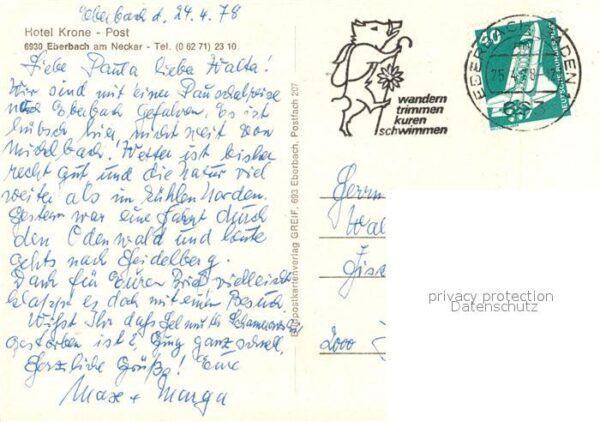 Eberbach d. 24.4.78
Hotel Krone - Post
6930 Eberbach am Neckar - Tel. (0 62 71) 23 10
Liebe Paula liebe Walta!
Wir sind mit einer Pauschalreise
nach Eberbach gefahren. Es ist
hübsch hier, nicht weit von
Michelbach! Wetter ist bisher
recht gut und die Natur viel
weiter als im kühlen Norden.
Gestern war eine Fahrt durch
den Odenwald und heute
gehts nach Heidelberg.
Dank für Euren Brief vielleicht
klappt es doch mit einem Besuch.
Wißt Ihr daß Helmuth
gestorben ist? Ging ganz schnell.
Herzliche Grüße! Eure
Max + Marga
Bildpostkartenverlag GREIF, 693 Eberbach, Postfach 207
wandern
trimmen
kuren
schwimmen
EBERBACH, BADEN
25.4.78
693
DEUTSCHE BUNDESPOST
Herrn
2000
privacy protection
Datenschutz